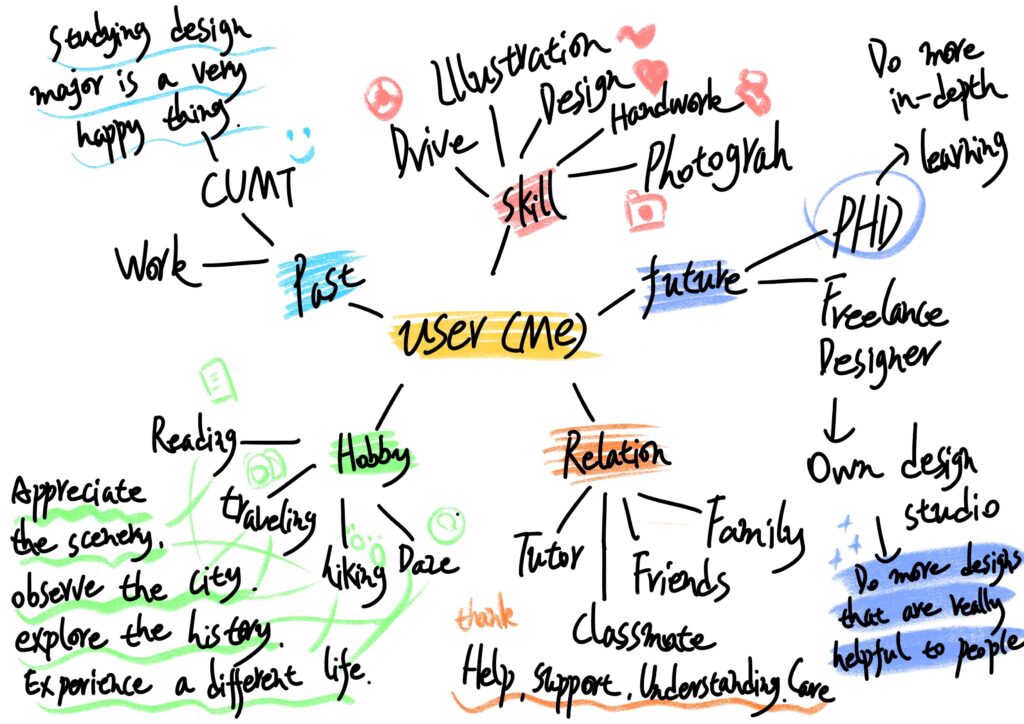 Studying design
major is a very
happy thing.
CUMT
Work
Past
Illustration
Design
Handwork
Drive
Photograh
Skill
Do more
in-depth
learning
PHD
future
Freelance
Designer
Own design
studio
Do more designs
that are really
helpful to people
user (Me)
Hobby
Reading
traveling
hiking
Daze
Appreciate
the scenery.
observe the city.
explore the history.
Experience a different life.
Relation
Tutor
Classmate
Friends
Family
thank
Help, Support, Understanding, Care